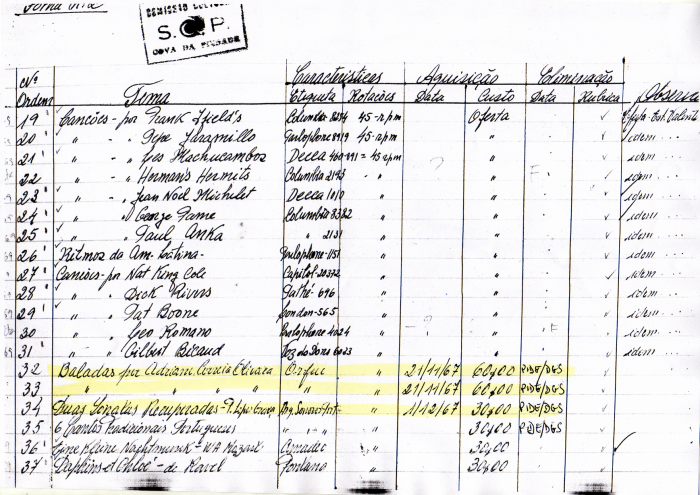 S.C.P.
COVA DA PIEDADE
Nº Ordem Tema Características Aquisição Eliminação
Etiqueta Rotações Data Custo Data Rubrica Observa
19 Canções - por Frank Ifield's Columbia 8254 45-rpm Oferta
20 " - " Pepe Jaramillo Parlophone 8919 45-rpm " idem
21 " - " Los Machucambos Decca 460-891 = 45 rpm " idem
22 " - " Herman's Hermits Columbia 2193 " " idem
23 " - " Jean Noël Michelet Decca 1010 " " idem
24 " - " George Fame Columbia 8382 " " idem
25 " - " Paul Anka " 2131 " " idem
26 Ritmos da Am. Latina - Parlophone-1151 " " idem
27 Canções - por Nat King Cole Capitol-20372 " " idem
28 " - " Dick Rivers Pathé- 696 " " idem
29 " - " Pat Boone London-565 " " idem
30 " - " Parlophone 4024 " " idem
31 " - " Gilbert Bécaud 6023 " " idem
32 Baladas por Adriano Correia Oliveira Orfeu " 21/11/67 60,00 PIDE/DGS
33 " " " " " " 21/11/67 60,00 PIDE/DGS
34 Duas Sonatas Recuperadas - F. Lopes Graça " 1/12/67 30,00 PIDE/DGS
35 6 Cantos Tradicionais Portugueses " " " 30,00 PIDE/DGS
36 Eine Kleine Nachtmusik - WA Mozart Amadeo " 30,00
37 Daphnis et Chloé - de Ravel Fontana " 30,00